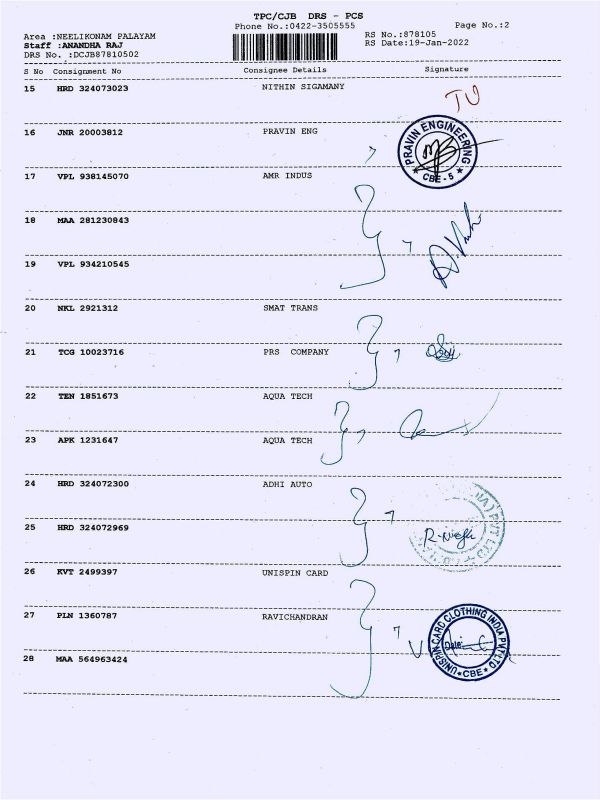 TPC/CJB DRS - PCS
Phone No.:0422-3505555
Page No.:2
Area :NEELIKONAM PALAYAM
RS No.:878105
Staff :ANANDHA RAJ
RS Date:19-Jan-2022
DRS No. :DCJB87810502
S No Consignment No Consignee Details Signature
15 HRD 324073023 NITHIN SIGAMANY
16 JNR 20003812 PRAVIN ENG
PRAVIN ENGINEERING
CBE - 5
17 VPL 938145070 AMR INDUS
18 MAA 281230843
19 VPL 934210545
20 NKL 2921312 SMAT TRANS
21 TCG 10023716 PRS COMPANY
22 TEN 1851673 AQUA TECH
23 APK 1231647 AQUA TECH
24 HRD 324072300 ADHI AUTO
25 HRD 324072969
26 KVT 2499397 UNISPIN CARD
27 PLN 1360787 RAVICHANDRAN
UNISPIN CARD CLOTHING INDIA PVT LTD
CBE
28 MAA 564963424